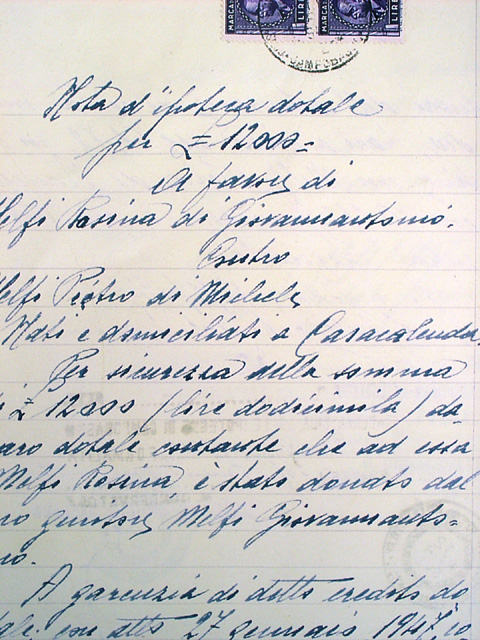 MARCA LIRE MARCA LIRE
Nota d'ipoteca dotale
per £ 12000=
A favore di
elfi Rosina di Giovannantonio.
Contro
elfi Pietro di Michele
Nati e domiciliati a Casacalenda.
Per sicurezza della somma
i £ 12000 (lire dodicimila) da
aro dotale contante che ad essa
Melfi Rosina è stato donato dal
ro genitore Melfi Giovannanto=
io.
A garenzia di detto credito do
ale con atto 27 gennaio 1947 io